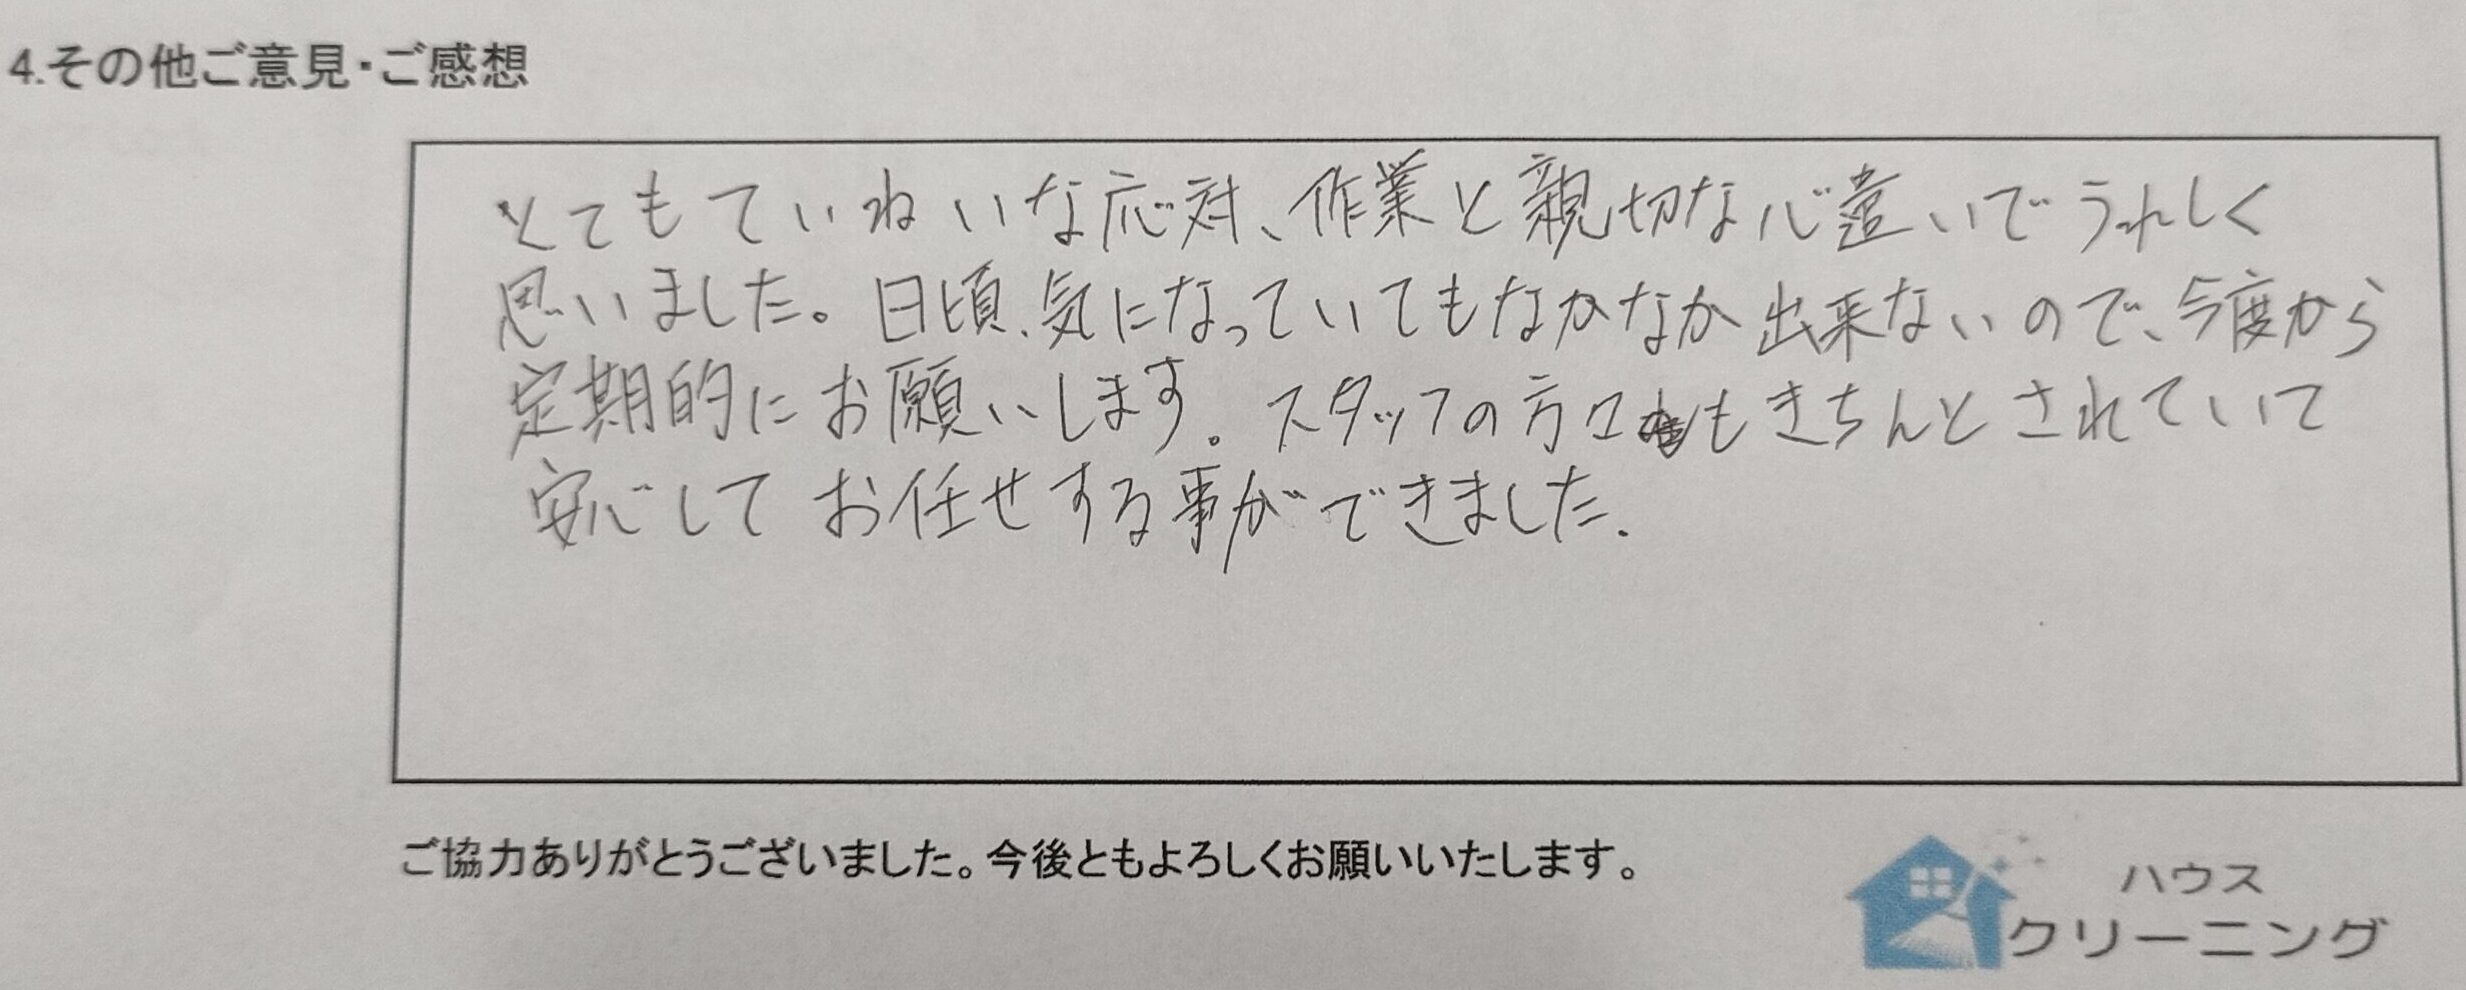 4.その他ご意見・ご感想
とてもていねいな応対、作業と親切な心遣いでうれしく
思いました。日頃、気になっていてもなかなか出来ないので、今度から
定期的にお願いします。スタッフの方々もきちんとされていて
安心してお任せする事ができました.
ご協力ありがとうございました。今後ともよろしくお願いいたします。
ハウス
クリーニング